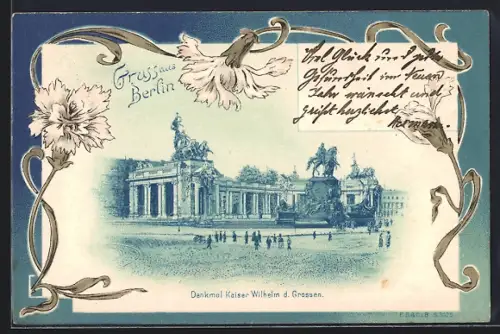 Gruss aus
Berlin
Viel Glück und gute
Gesundheit im Neuen
Jahr wünscht und
grüßt herzlichst
Hermann.
Denkmal Kaiser Wilhelm d. Grossen.